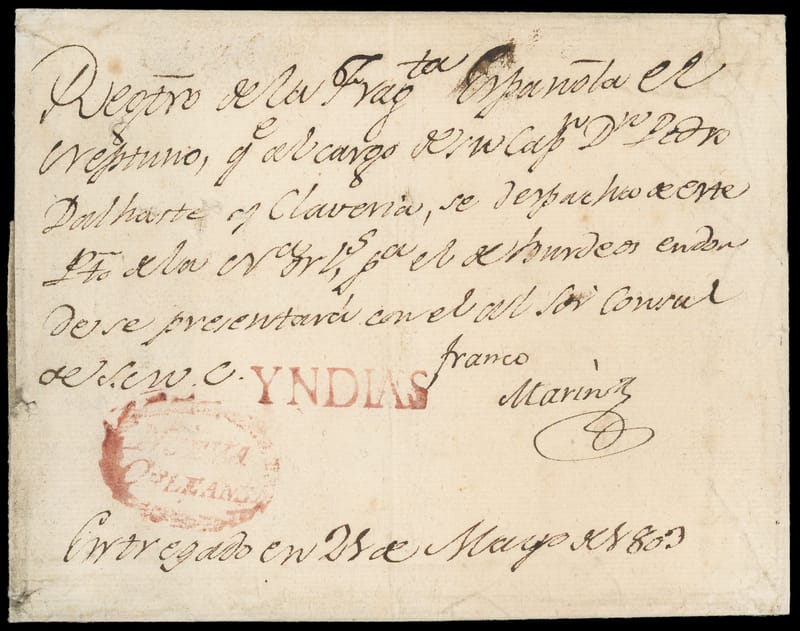 Regtro de la Fragta Española el
Neptuno, qe al cargo de su Capn Dn Pedro
Dalhaste y Claveria, se despacha de este
Pto de la Na Orls pa el de Burdeos en don
de se presentará con el al Sor Consul
de S.M.C.
franco
YNDIAS
Marin
NUEVA
ORLEANS
Entregado en 21 de Mayo de 1803